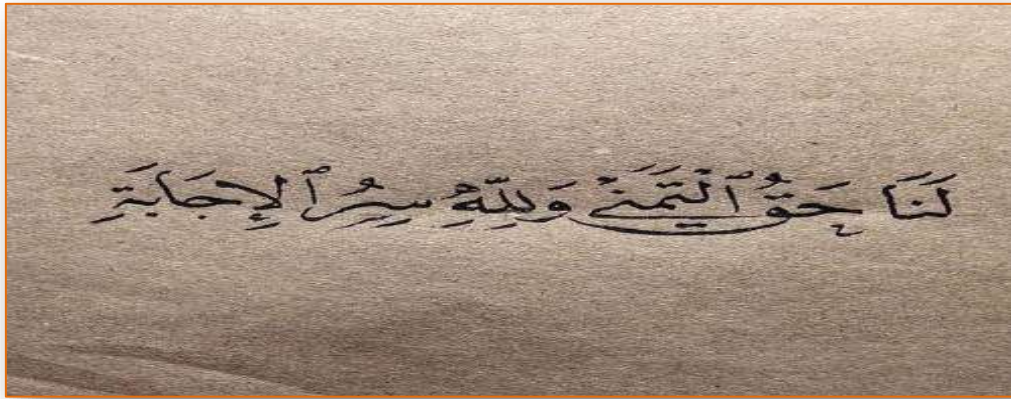 لَنَا حَقُّ ٱلتَّمَنِّي وَلِلَّهِ سِرُّ ٱلإِجَابَةِ